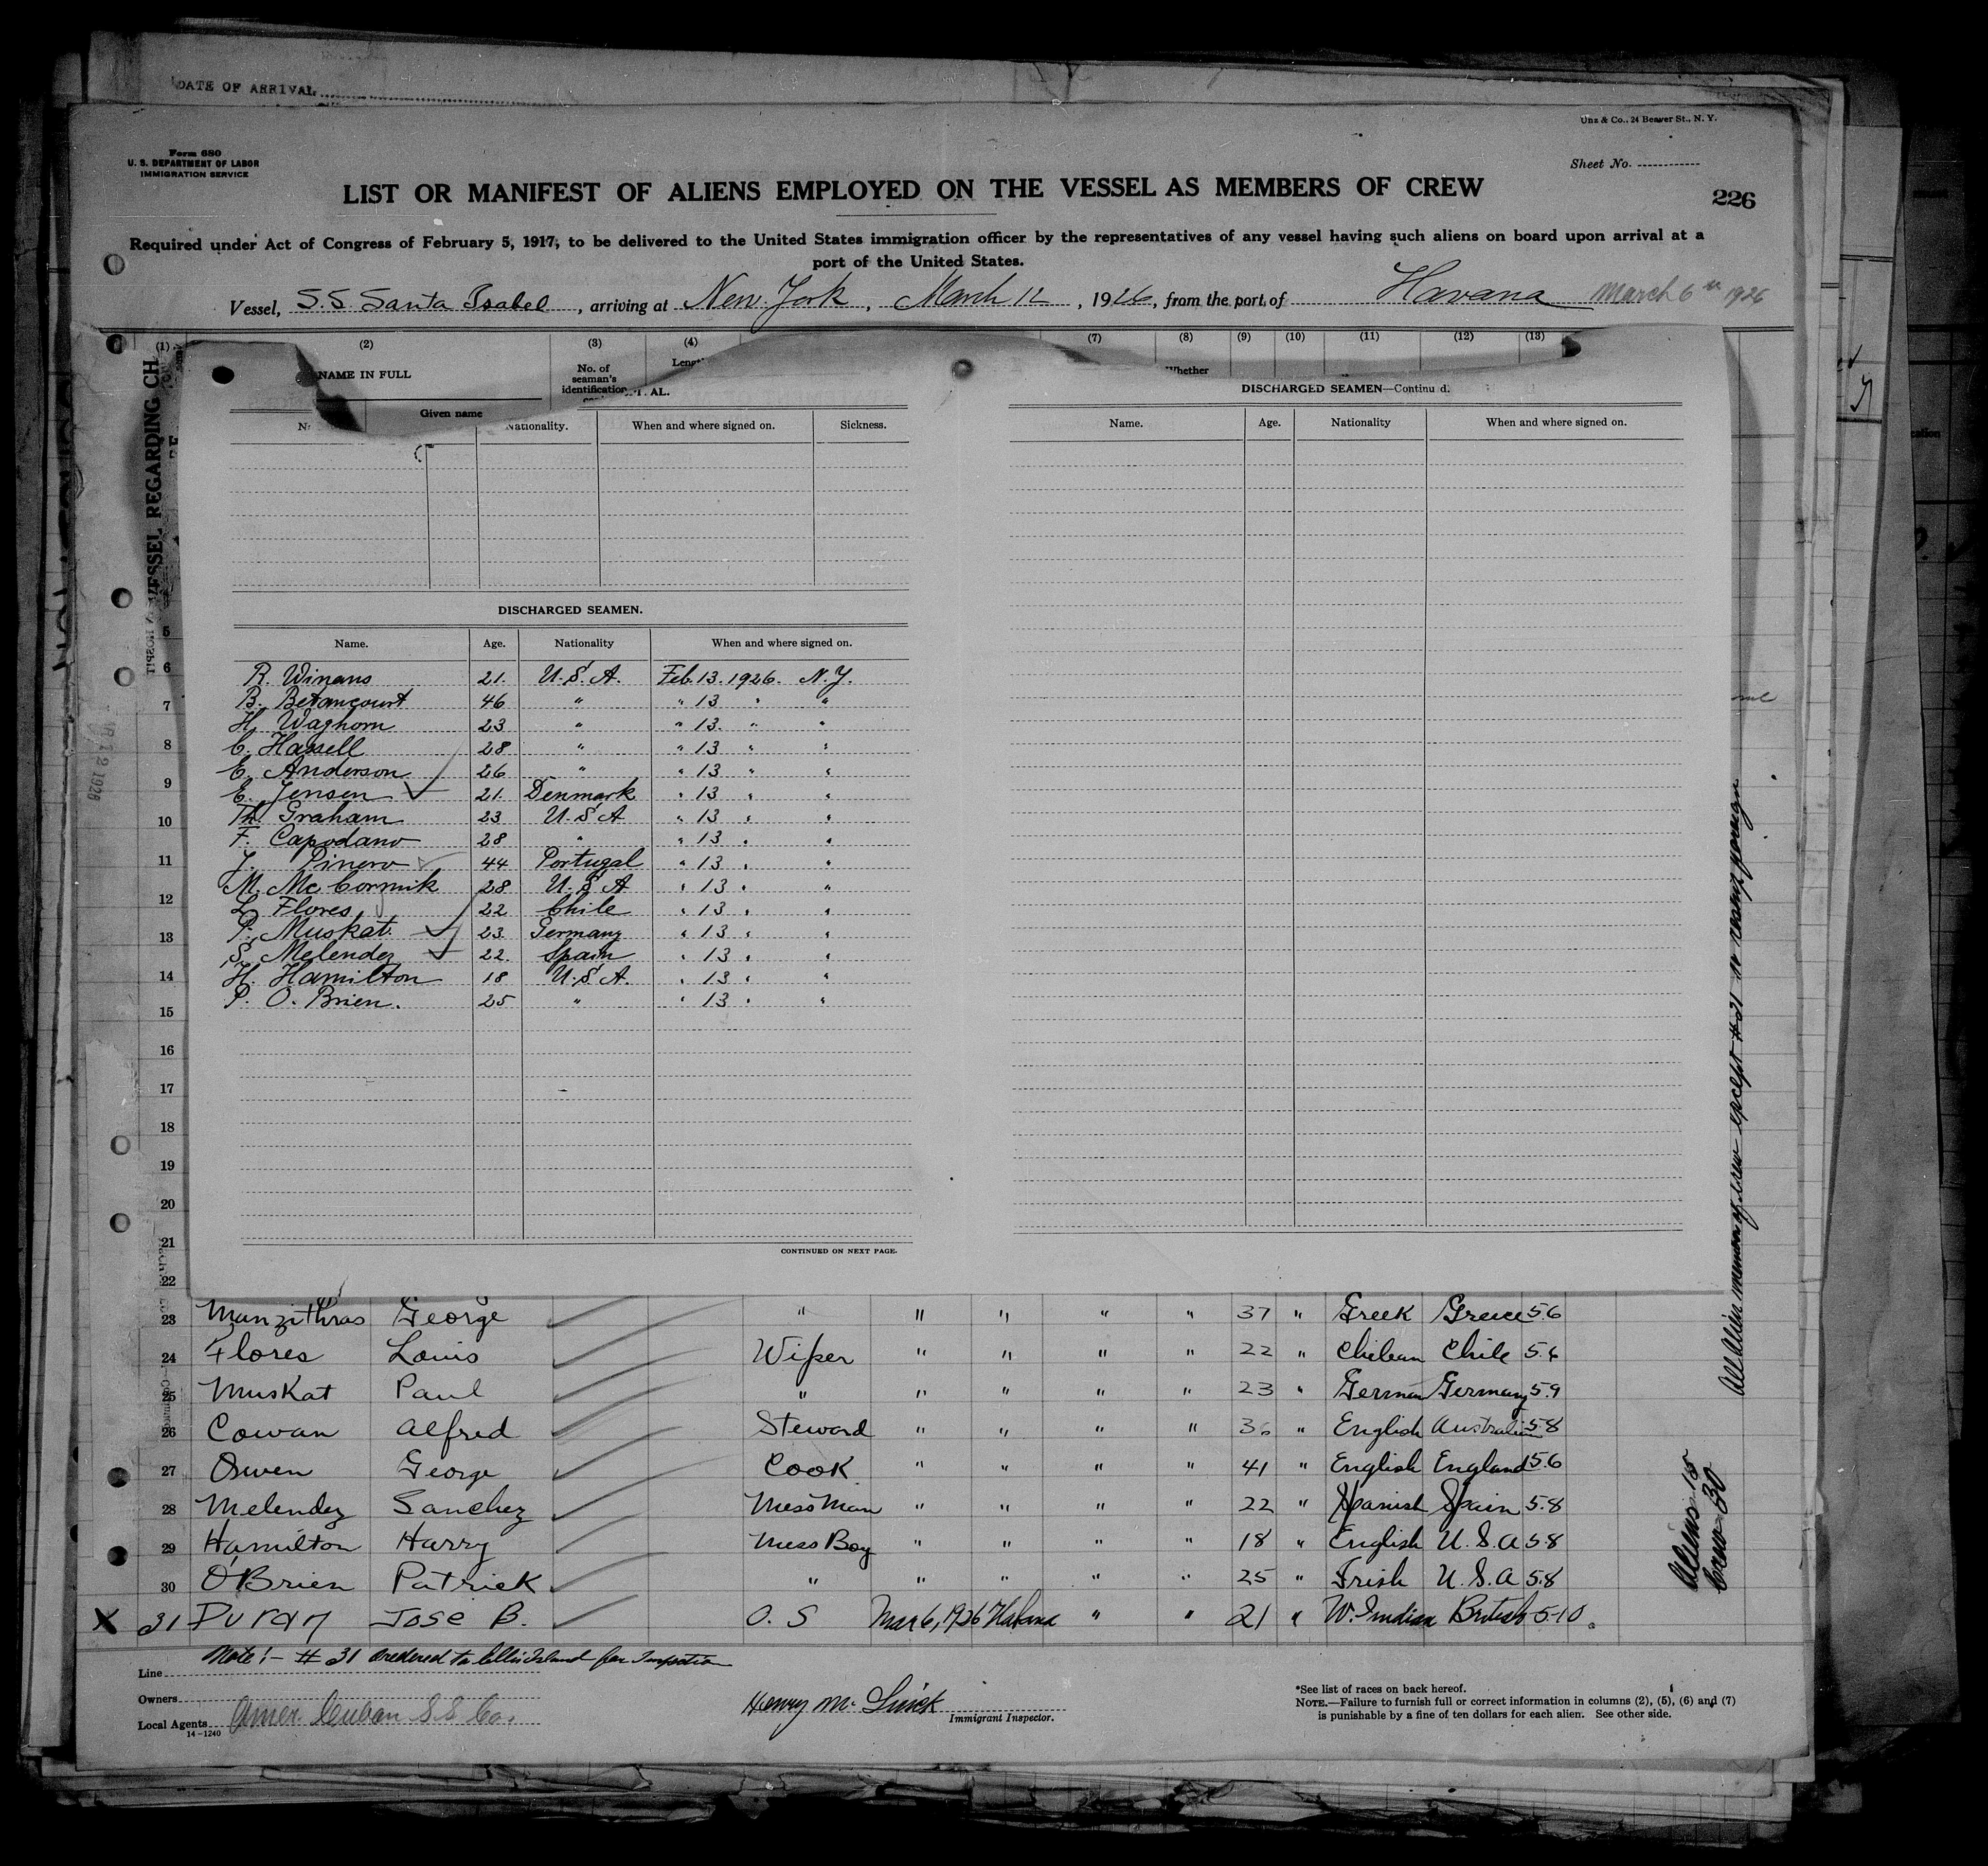 DATE OF ARRIVAL
Unz & Co., 24 Beaver St., N. Y.
Form 680
U. S. DEPARTMENT OF LABOR
IMMIGRATION SERVICE
Sheet No.
LIST OR MANIFEST OF ALIENS EMPLOYED ON THE VESSEL AS MEMBERS OF CREW
226
Required under Act of Congress of February 5, 1917, to be delivered to the United States immigration officer by the representatives of any vessel having such aliens on board upon arrival at a
port of the United States.
Vessel, S.S. Santa Isabel, arriving at New York, March 12, 1926, from the port of Havana March 6th 1926
(1) (2) (3) (4) (7) (8) (9) (10) (11) (12) (13)
NAME IN FULL No. of seaman's identification Whether
Given name
VESSEL REGARDING CH
DISCHARGED SEAMEN—Continu d.
Nationality. When and where signed on. Sickness.
Name. Age. Nationality When and where signed on.
DISCHARGED SEAMEN.
Name. Age. Nationality When and where signed on.
5
6 R. Winans 21. U.S.A. Feb. 13. 1926. N.Y.
7 B. Betancourt 46 " " 13 " "
H. Waghorn 23 " " 13. " "
8 C. Hassell 28 " " 13 " "
E. Anderson 26 " " 13 " "
9 E. Jensen 21. Denmark " 13 " "
10 Th. Graham 23 U.S.A " 13 " "
F. Capodano 28 " " 13 " "
11 J. Pinero 44 Portugal " 13 " "
12 M. Mc Cormik 28 U.S.A " 13 " "
L. Flores 22 Chile " 13 " "
13 P. Muskat. 23 Germany " 13 " "
S. Melendez 22. Spain " 13 " "
14 H. Hamilton 18 U.S.A. " 13 " "
15 P. O. Brien. 25 " " 13 " "
16
17
18
19
20
21
CONTINUED ON NEXT PAGE.
22
23 Manzithras George " " " " " 37 " Greek Greece 5.6
24 Flores Louis Wiper " " " " 22 " Chilean Chile 5.6
25 Muskat Paul " " " " " 23 " German Germany 5.9
26 Cowan Alfred Steward " " " " 36 " English Australia 5.8
27 Owen George Cook " " " " 41 " English England 5.6
28 Melendez Sanchez Mess Man " " " " 22 " Spanish Spain 5.8
29 Hamilton Harry Mess Boy " " " " 18 " English U.S.A 5.8
30 O'Brien Patrick " " " " " 25 " Irish U.S.A 5.8
X 31 Duran Jose B. O.S Mar 6, 1926 Habana " " 21 " W. Indian British 5-10
Note:- # 31 ordered to Ellis Island for Inspection
Line
Owners
Local Agents Amer. Cuban S.S. Co.
14-1240
Henry M.
Immigrant Inspector.
*See list of races on back hereof.
NOTE.—Failure to furnish full or correct information in columns (2), (5), (6) and (7)
is punishable by a fine of ten dollars for each alien. See other side.
Aliens 15
Crew 30